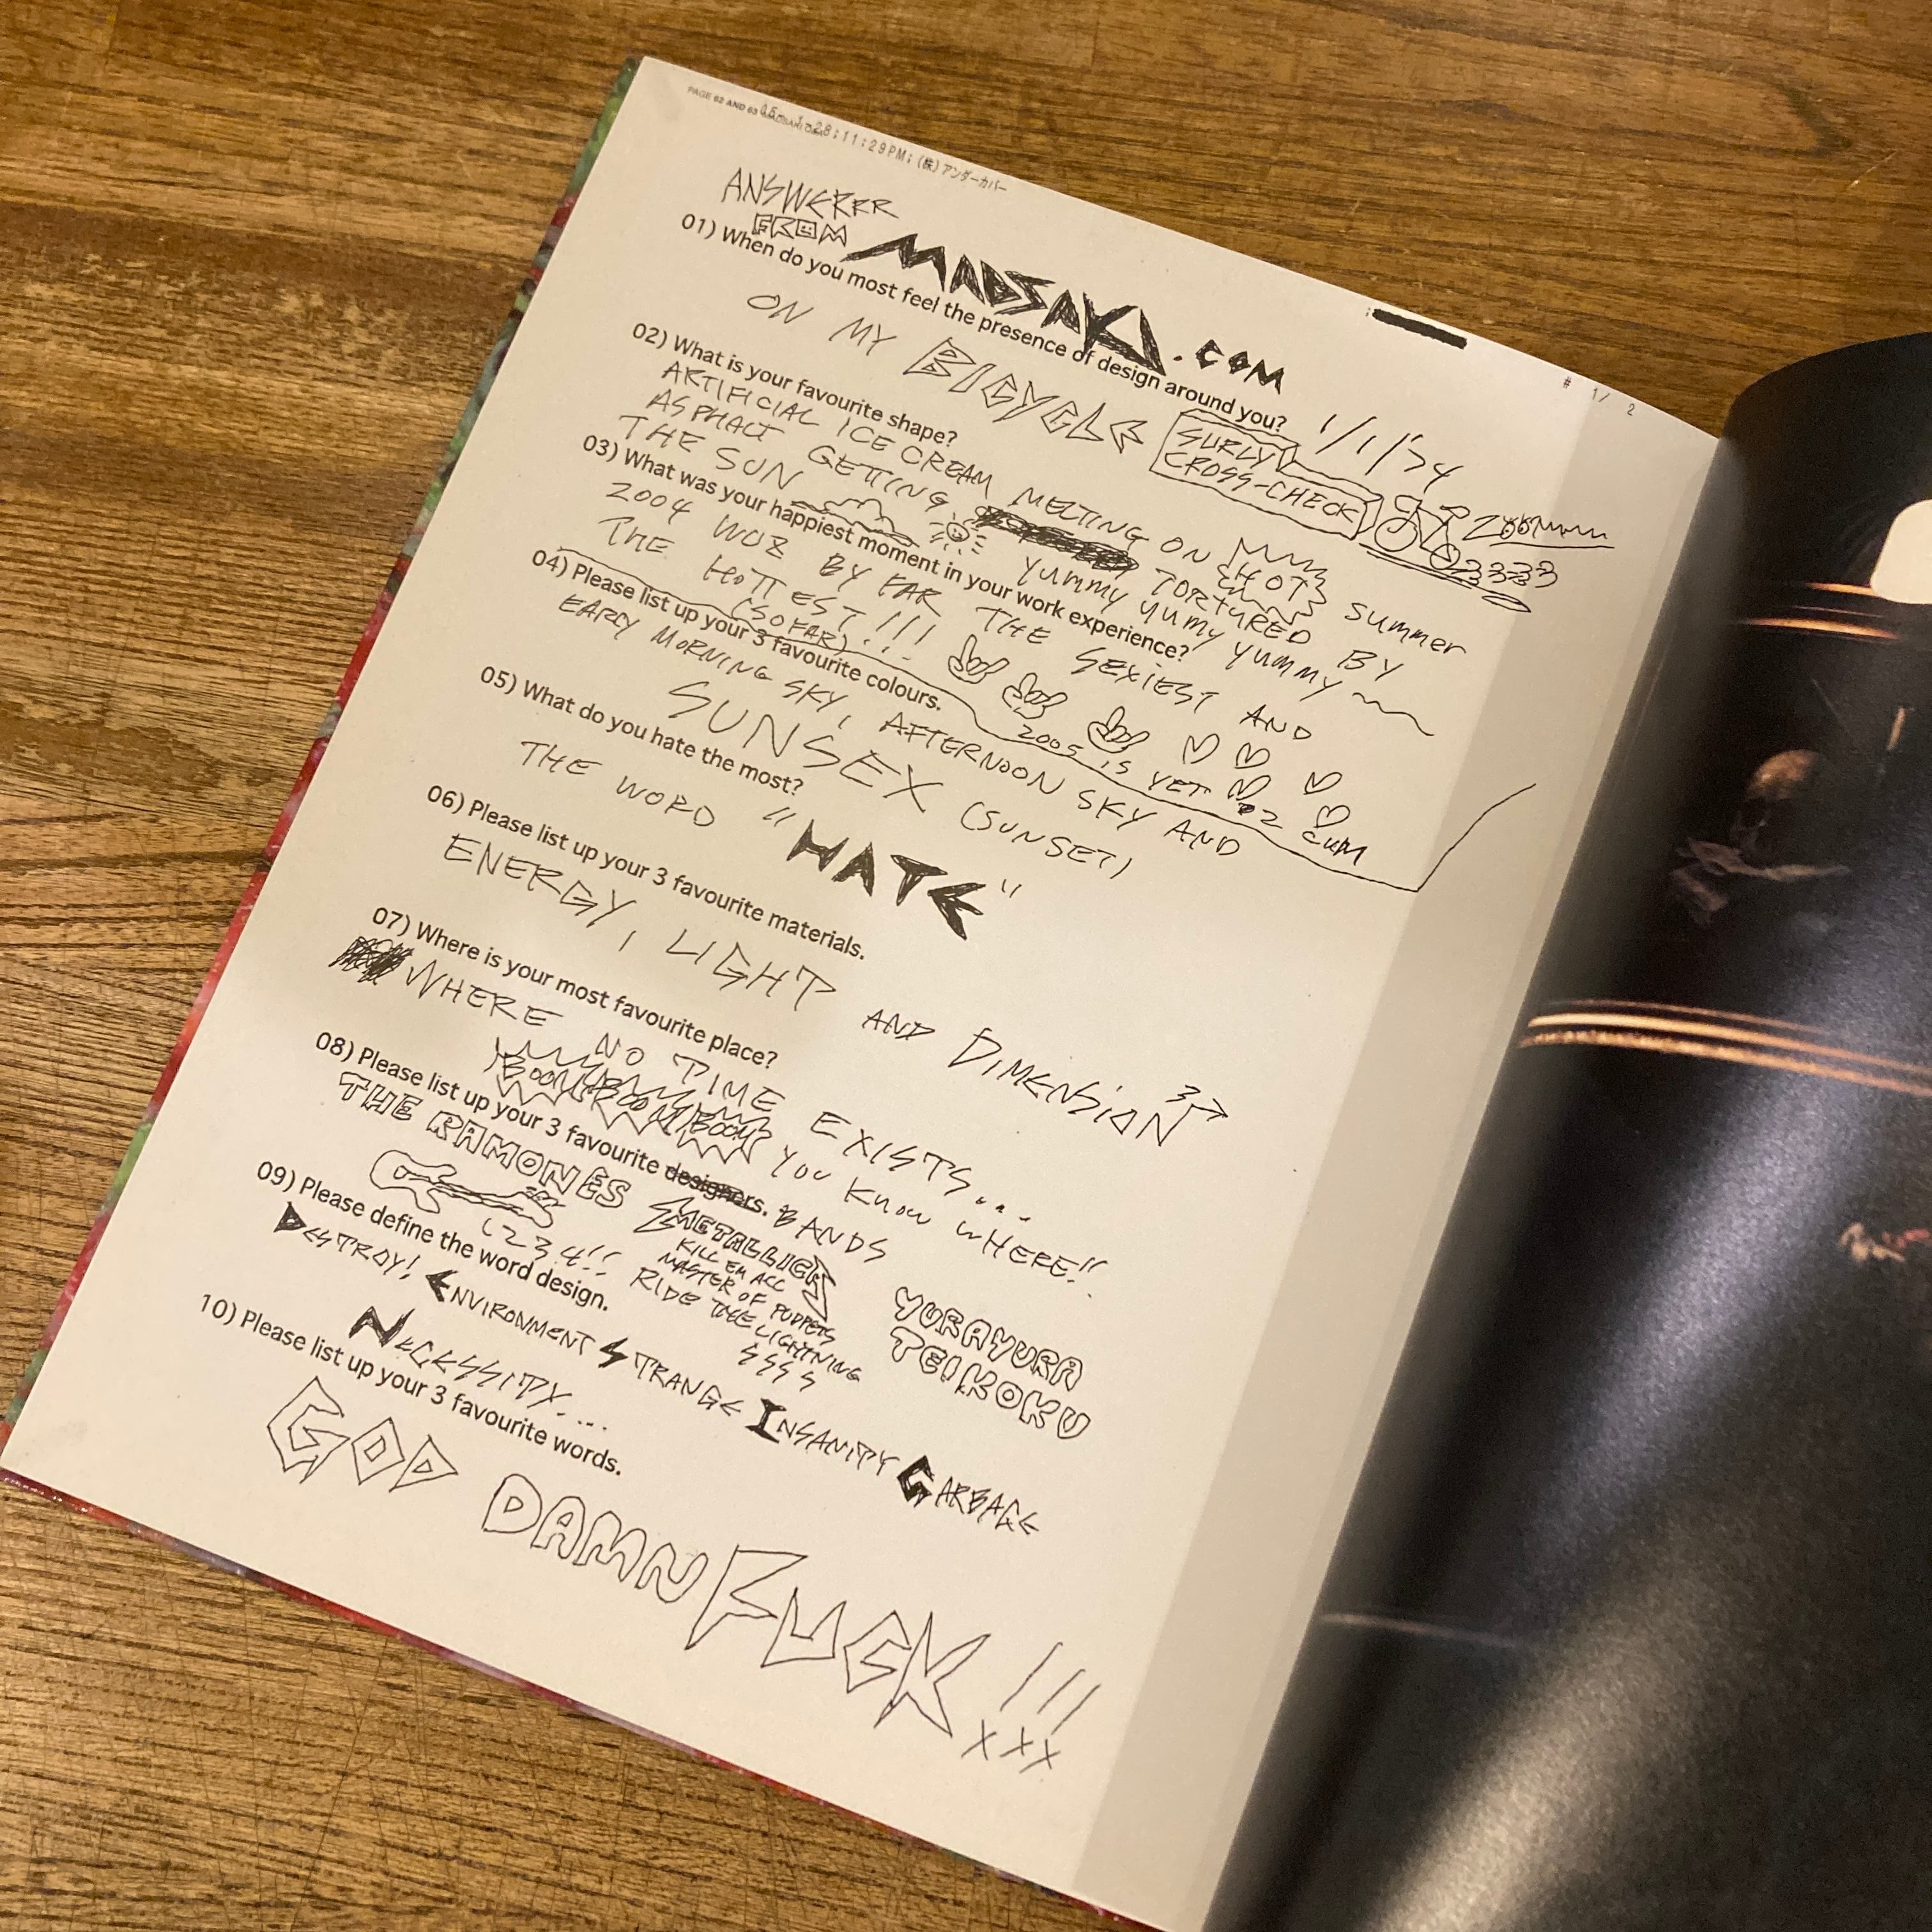 PAGE 62 AND 63
28:11:29PM;(株)アンダーカバー
# 1/ 2
ANSWERRR
FROM
MADSAKI.COM
1/1/'74
01) When do you most feel the presence of design around you?
ON MY BICYCLE
SURLY
CROSS-CHECK
02) What is your favourite shape?
ARTIFICIAL ICE CREAM MELTING ON HOT SUMMER
ASPHALT GETTING TORTURED BY
THE SUN YUMMY YUMY YUMMY
03) What was your happiest moment in your work experience?
2004 WOZ BY FAR THE SEXIEST AND
THE HOTTEST!!!
(SO FAR)
2005 IS YET 2 CUM
04) Please list up your 3 favourite colours.
EARLY MORNING SKY, AFTERNOON SKY AND
SUNSEX (SUNSET)
05) What do you hate the most?
THE WORD "HATE"
06) Please list up your 3 favourite materials.
ENERGY, LIGHT AND DIMENSION
07) Where is your most favourite place?
WHERE NO TIME EXISTS...
BOOM BOOM BOOM YOU KNOW WHERE!!
08) Please list up your 3 favourite designers. BANDS
THE RAMONES METALLICA YURAYURA
TEIKOKU
1234!!
KILL EM ALL
MASTER OF PUPPETS
RIDE THE LIGHTNING
09) Please define the word design.
DESTROY! ENVIRONMENT STRANGE INSANITY GARBAGE
NECESSITY....
10) Please list up your 3 favourite words.
GOD DAMN FUCK!!!
XXX